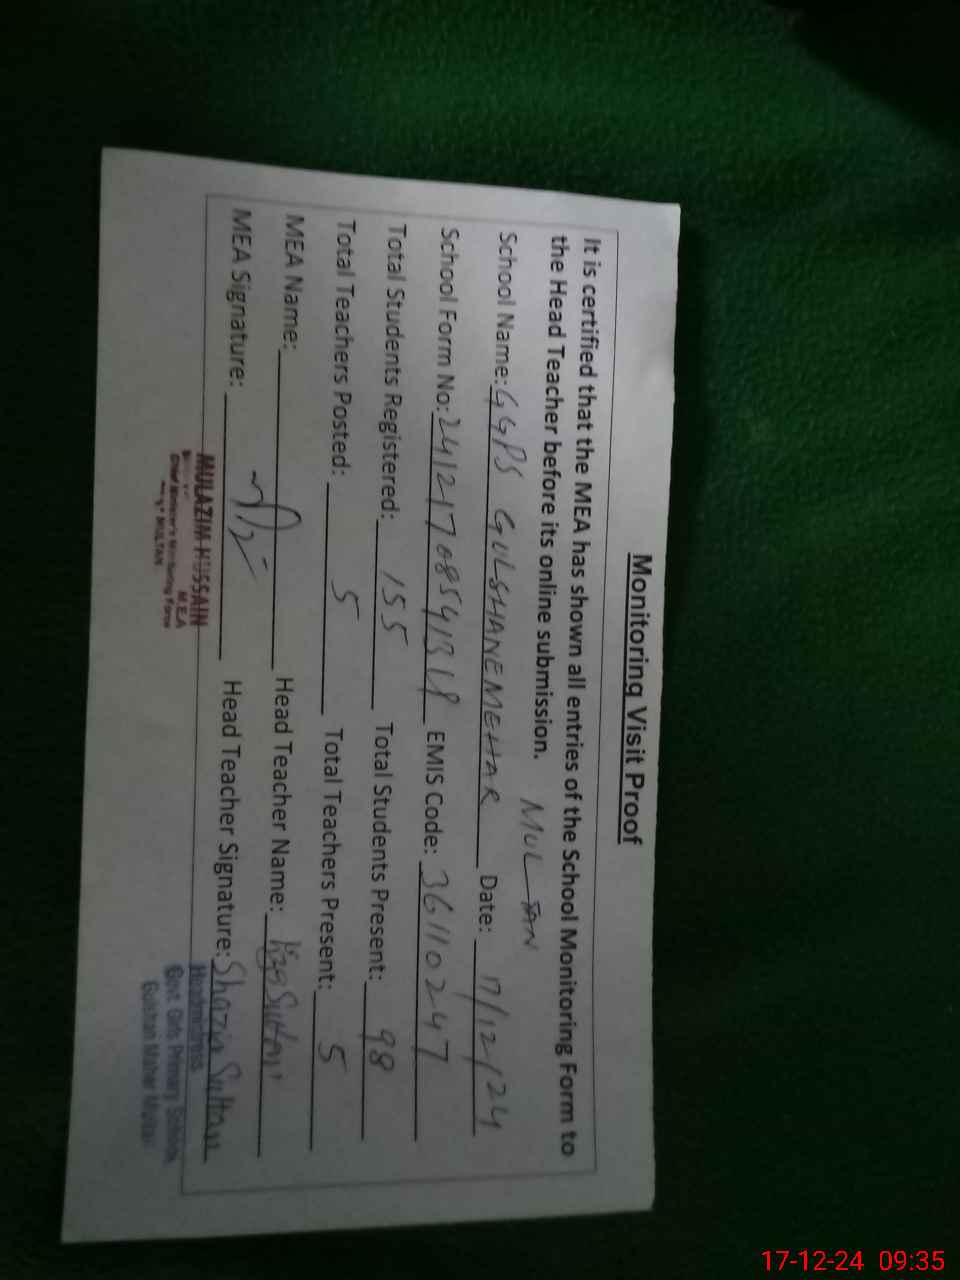 Monitoring Visit Proof
It is certified that the MEA has shown all entries of the School Monitoring Form to
the Head Teacher before its online submission.
MULTAN
School Name: GGPS GULSHANEMEHAR Date: 17/12/24
School Form No: EMIS Code: 36110247
Total Students Registered: 155 Total Students Present: 98
Total Teachers Posted: 5 Total Teachers Present: 5
MEA Name: Head Teacher Name:
MEA Signature: Head Teacher Signature: Shazia Sultan
MULAZIM HUSSAIN
M.E.A
MULTAN
Headmistress
Govt. Girls Primary School
Gulshan Mehar
17-12-24 09:35